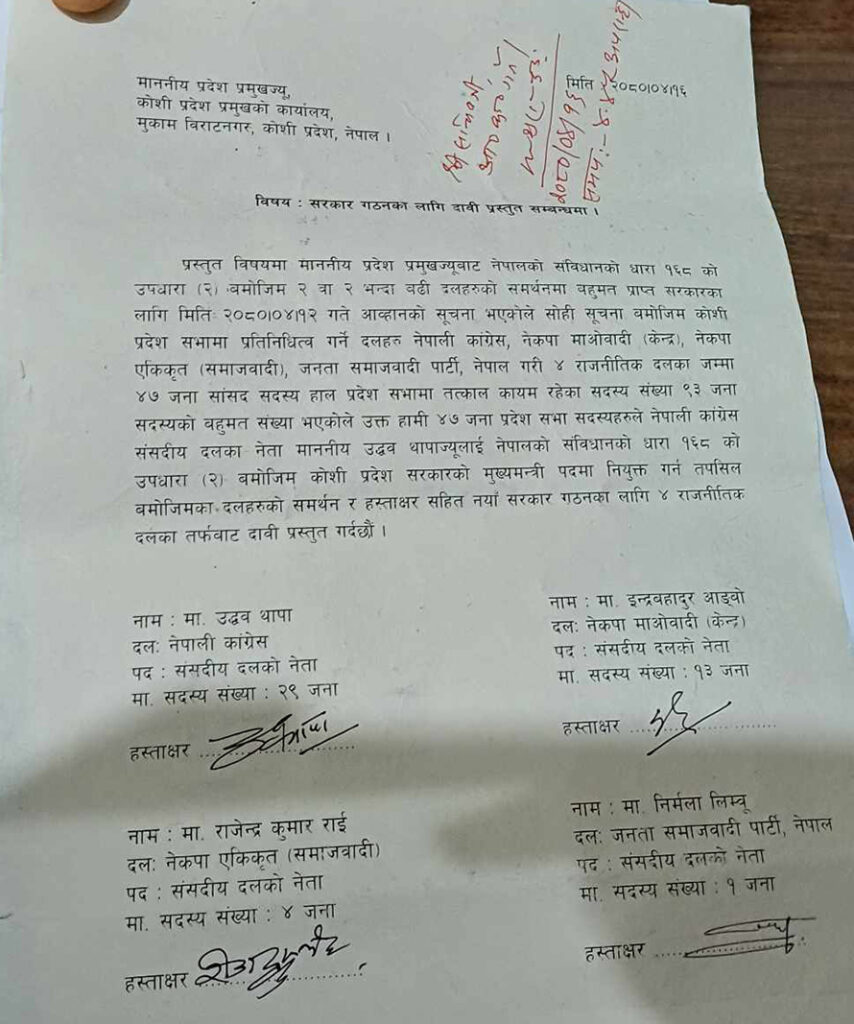 माननीय प्रदेश प्रमुखज्यू,
कोशी प्रदेश प्रमुखको कार्यालय,
मुकाम विराटनगर, कोशी प्रदेश, नेपाल ।
मिति २०८०।०४।१६
२०८०/०४/१६
समय:-
विषय : सरकार गठनका लागि दावी प्रस्तुत सम्बन्धमा ।
प्रस्तुत विषयमा माननीय प्रदेश प्रमुखज्यूबाट नेपालको संविधानको धारा १६८ को
उपधारा (२) बमोजिम २ वा २ भन्दा बढी दलहरुको समर्थनमा बहुमत प्राप्त सरकारका
लागि मितिः २०८०।०४।१२ गते आव्हानको सूचना भएकोले सोही सूचना बमोजिम कोशी
प्रदेश सभामा प्रतिनिधित्व गर्ने दलहरु नेपाली कांग्रेस, नेकपा माओवादी (केन्द्र), नेकपा
एकिकृत (समाजवादी), जनता समाजवादी पार्टी, नेपाल गरी ४ राजनीतिक दलका जम्मा
४७ जना सांसद सदस्य हाल प्रदेश सभामा तत्काल कायम रहेका सदस्य संख्या ९३ जना
सदस्यको बहुमत संख्या भएकोले उक्त हामी ४७ जना प्रदेश सभा सदस्यहरुले नेपाली कांग्रेस
संसदीय दलका नेता माननीय उद्धव थापाज्यूलाई नेपालको संविधानको धारा १६८ को
उपधारा (२) बमोजिम कोशी प्रदेश सरकारको मुख्यमन्त्री पदमा नियुक्त गर्न तपसिल
बमोजिमका दलहरुको समर्थन र हस्ताक्षर सहित नयाँ सरकार गठनका लागि ४ राजनीतिक
दलका तर्फबाट दावी प्रस्तुत गर्दछौं ।
नाम : मा. उद्धव थापा
दल: नेपाली कांग्रेस
पद : संसदीय दलको नेता
मा. सदस्य संख्या : २९ जना
हस्ताक्षर
नाम : मा. इन्द्रबहादुर आङ्वो
दल: नेकपा माओवादी (केन्द्र)
पद : संसदीय दलको नेता
मा. सदस्य संख्या : १३ जना
हस्ताक्षर
नाम : मा. राजेन्द्र कुमार राई
दल: नेकपा एकिकृत (समाजवादी)
पद : संसदीय दलको नेता
मा. सदस्य संख्या : ४ जना
हस्ताक्षर
नाम : मा. निर्मला लिम्बू
दल: जनता समाजवादी पार्टी, नेपाल
पद : संसदीय दलको नेता
मा. सदस्य संख्या : १ जना
हस्ताक्षर